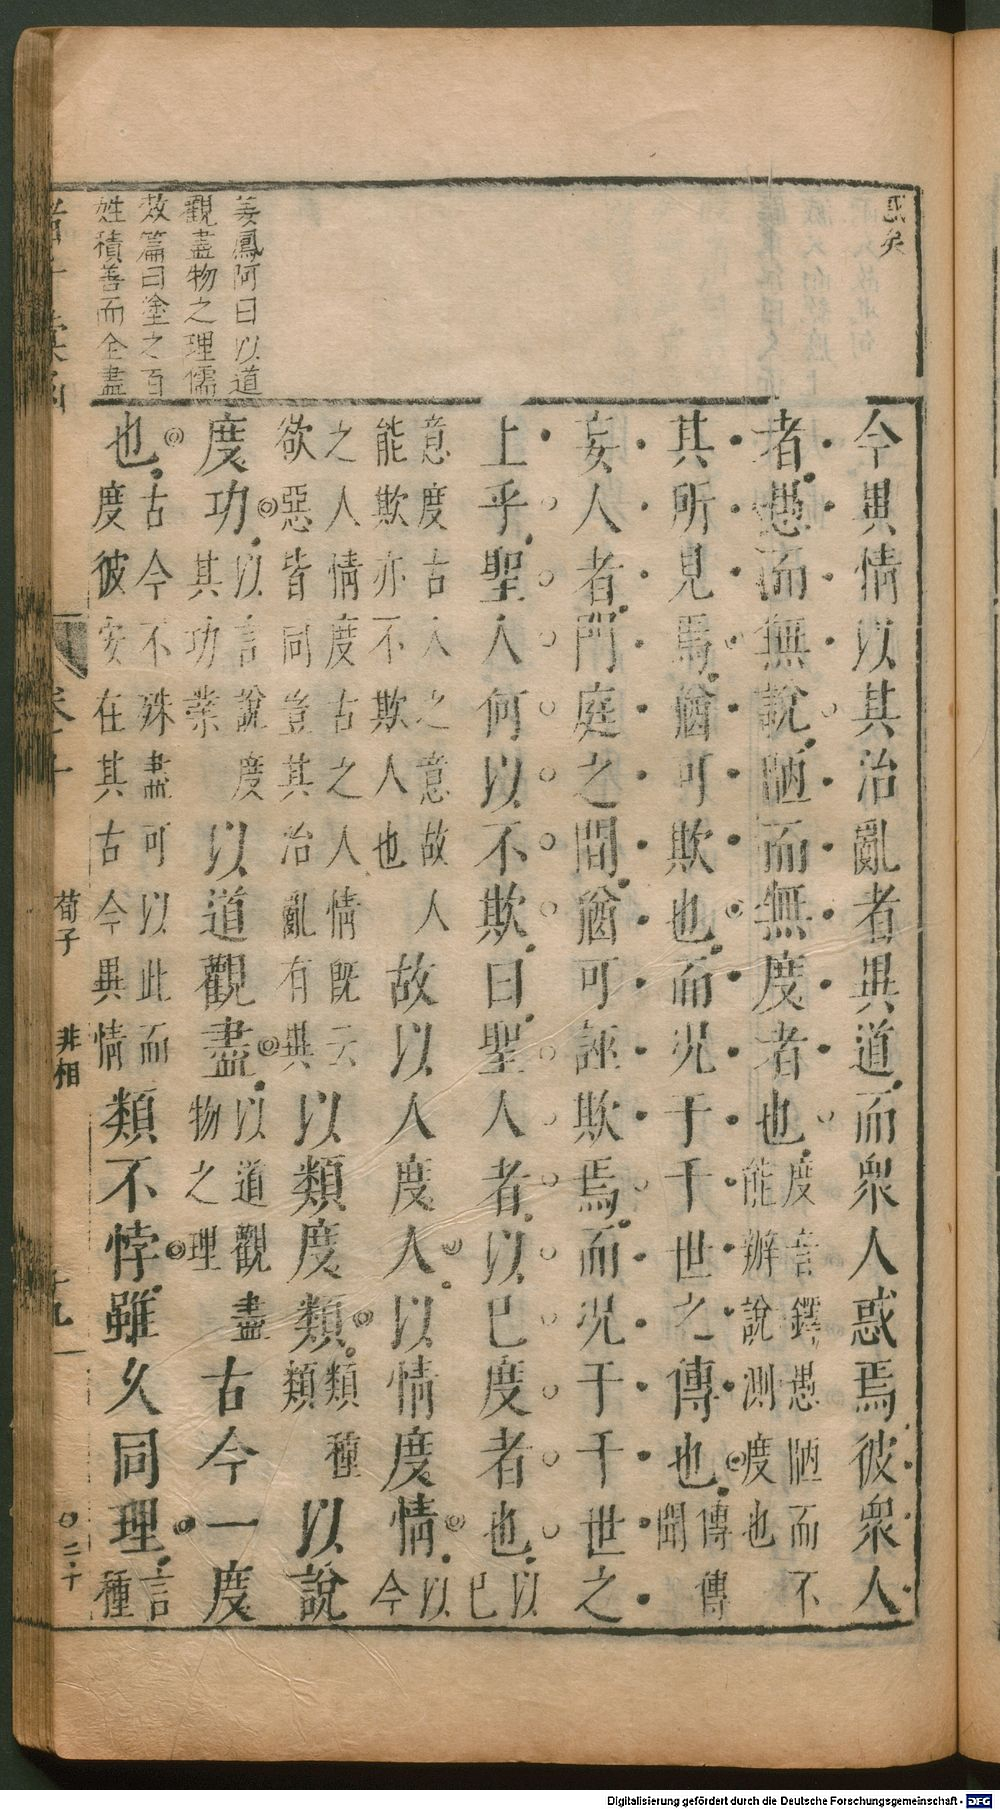 矣
姜鳳阿曰以道
觀盡物之理儒
效篇曰塗之百
姓積善而全盡
今異情以其治亂者異道而衆人惑焉彼衆人
者愚而無說陋而無度者也度言鐸愚陋而不能辦說測度也
其所見焉猶可欺也而况于千世之傳也傳傳聞
妄人者門庭之間猶可誣欺焉而况于千世之
上乎聖人何以不欺曰聖人者以已度者也以已
意度古人之意故人能欺亦不欺人也故以人度人以情度情以今
之人情度古之人情既云欲惡皆同豈其治亂有異以類度類類種類以說
度功以言說度其功業以道觀盡以道觀盡物之理古今一度
也古今不殊盡可以此而度彼安在其古今異情類不悖雖久同理言種
荀子 非相
〇二十
Digitalisierung gefördert durch die Deutsche Forschungsgemeinschaft - DFG